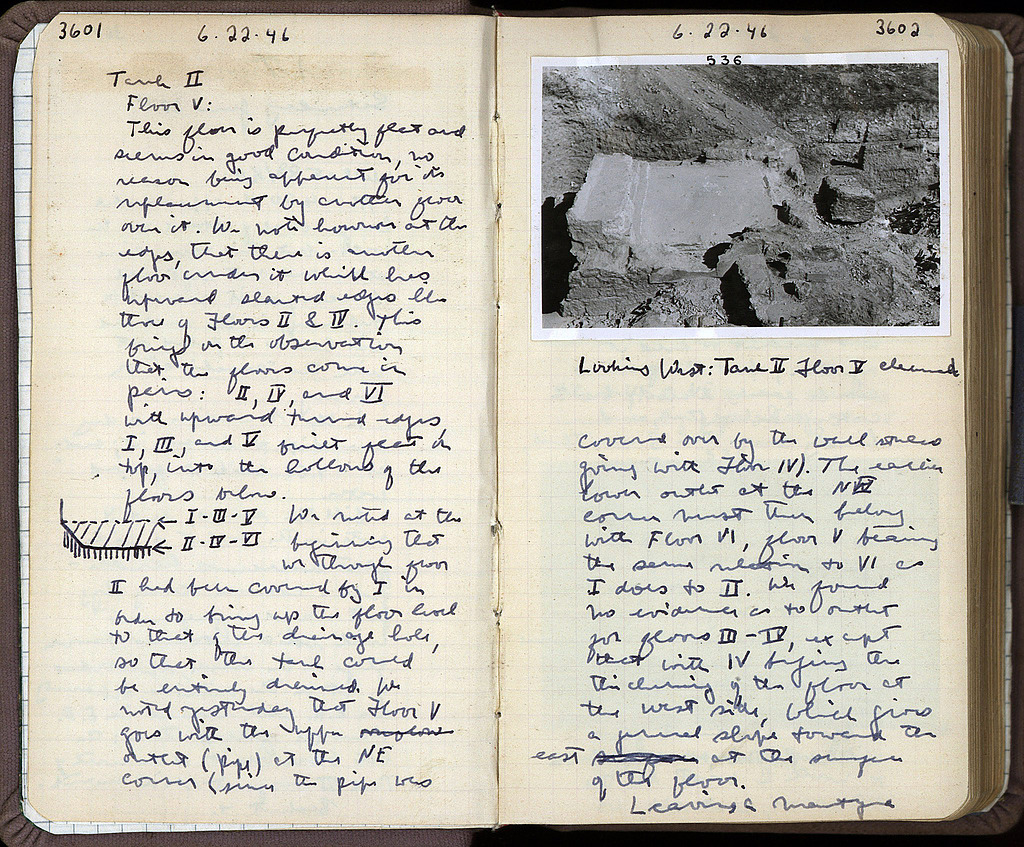 3601
6.22.46
Tank II
Floor V:
This floor is perfectly flat and
seems in good condition, no
reason being apparent for its
replacement by another floor
over it. We note however at the
edges, that there is another
floor under it which has
upward slanted edges like
those of Floors II & IV. This
brings on the observation
that the floors come in
pairs: II, IV, and VI
with upward turned edges,
I, III, and V built flat on
top, into the hollows of the
floors below.
← I-III-V We noted at the
← II-IV-VI beginning that
we thought floor
II had been covered by I in
order to bring up the floor level
to that of the drainage hole,
so that the tank could
be entirely drained. We
noted yesterday that Floor V
goes with the upper
outlet (pipe) at the NE
corner (since the pipe was
6.22.46
3602
536
Looking West: Tank II Floor V cleaned
covered over by the wall
going with Floor IV). The earlier
lower outlet at the
corner must then belong
with Floor VI, floor V bearing
the same relation to VI as
I does to II. We found
no evidence as to outlet
for floors III-IV, except
that with IV begins the
thickening of the floor at
the west side, which gives
a general slope toward the
east at the surface
of the floor.
Leaving a